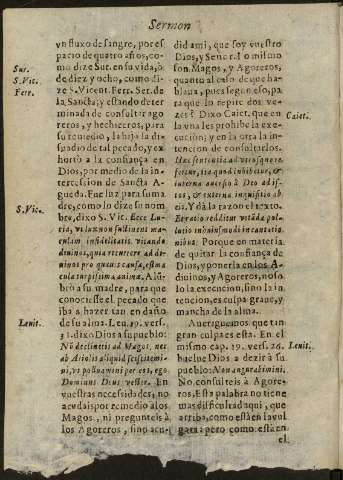 Sermon
vn fluxo de sangre, por es
pacio de quatro años, co-
mo dize Sur. en su vida, ò
de diez y ocho, como di-
ze S. Vicent. Ferr. Ser. de
la Sancta; y estando deter
minada de consultar ago
reros, y hechceros, para
su remedio, la hija la dis-
suadio de tal pecado, y ex
hortò a la confiança en
Dios, por medio de la in-
tercession de Sancta A-
gueda. Fue luz para su ma
dre, como lo dize su nom
bre, dixo S. Vic. Ecce Lu-
cia, vt lux non sustinens ma-
culam infidelitatis vitando
diuinos, quia recurrere ad di-
uinos pro quacũ causa, est ma
cula turpissima animæ. Alũ-
brò a su madre, para que
conociesse el pecado que
iba a hazer tan en daño
de su alma. Leu. 19. vers.
31. dixo Dios a su pueblo:
No declinetis ad Magos, nec
ab Ariolis aliquid sciscitemi-
ni, vt polluamini per eos, ego
Dominus Deus vester. En
vuestras necessidades, no
acudais por remedio à los
Magos, ni pregunteis à
los Agoreros, sino acu-
did a mi, que soy vuestro
Dios, y Señor. Lo mismo
son Magos, y Agoreros,
quanto al caso de que ha-
blaua, pues segun esso, pa
ra que lo repite dos ve-
zes? Dixo Caiet. que en
la vna les prohibe la exe-
cucion; y en la otra la in-
tencion de consultarlos.
Y dà la razon el texto.
Porque en materia
de quitar la confiança de
Dios, y ponerla en los A-
diuinos, y Agoreros, no so
lo la execucion, sino la in
tencion, es culpa graue, y
mancha de la alma.
Aueriguemos que tan
gran culpa es esta. En el
mismo cap. 19. vers. 26.
buelue Dios a dezir à su
pueblo: Non augurabimini.
No consulteis à Agore-
ros. Esta palabra no tiene
mas dificultad aqui, que
como està en
gata: pero como està en
el
Sur.
S. Vic.
Ferr.
S. Vic.
Leuit.
Caiet.
Leuit.